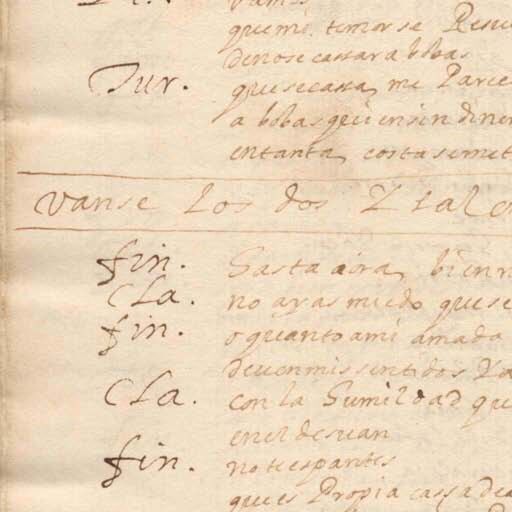 que mi temor se
de no se cassara bobas
Tur. que se cassa, me Parce
a bobas que en sin diner
en tanta, costa se met
Vanse los dos Y sale
fin. Gasta aora, bien
Cla. no ayas miedo que se
fin. o quanto a mi amada
deven mis sentidos Ya
Cla. con la Gumildad que
en el desuan
fin. no te espantes
que es Propia cassa de